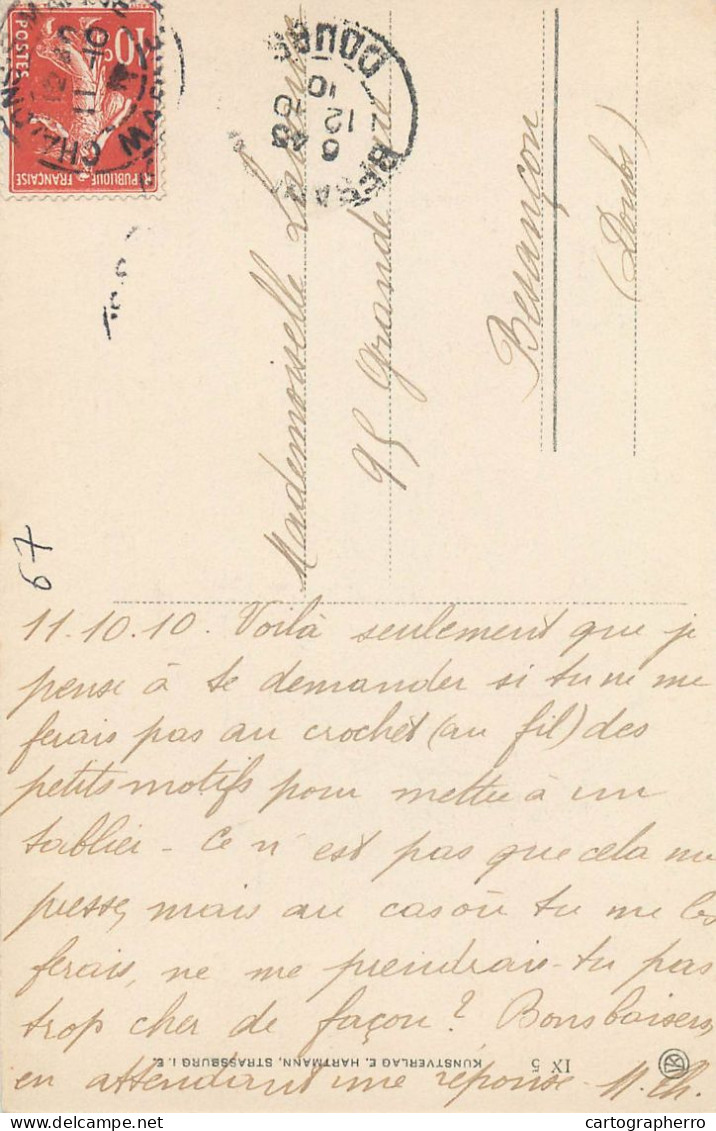 10c
POSTES
REPUBLIQUE FRANÇAISE
BESANÇON
DOUBS
6 45
12 10
10
Mademoiselle
95 Grande Rue
Besançon
(Doubs)
67
11.10.10. Voilà seulement que je
pense à te demander si tu ne me
ferais pas au crochet (au fil) des
petits motifs pour mettre à un
tablier - Ce n'est pas que cela me
presse, mais au cas où tu me les
ferais, ne me prendrais-tu pas
trop cher de façon? Bons baisers
en attendant une réponse. M. Th.
KUNSTVERLAG E. HARTMANN, STRASSBURG I. E.
IX 5
delcampe.net
cartographerro